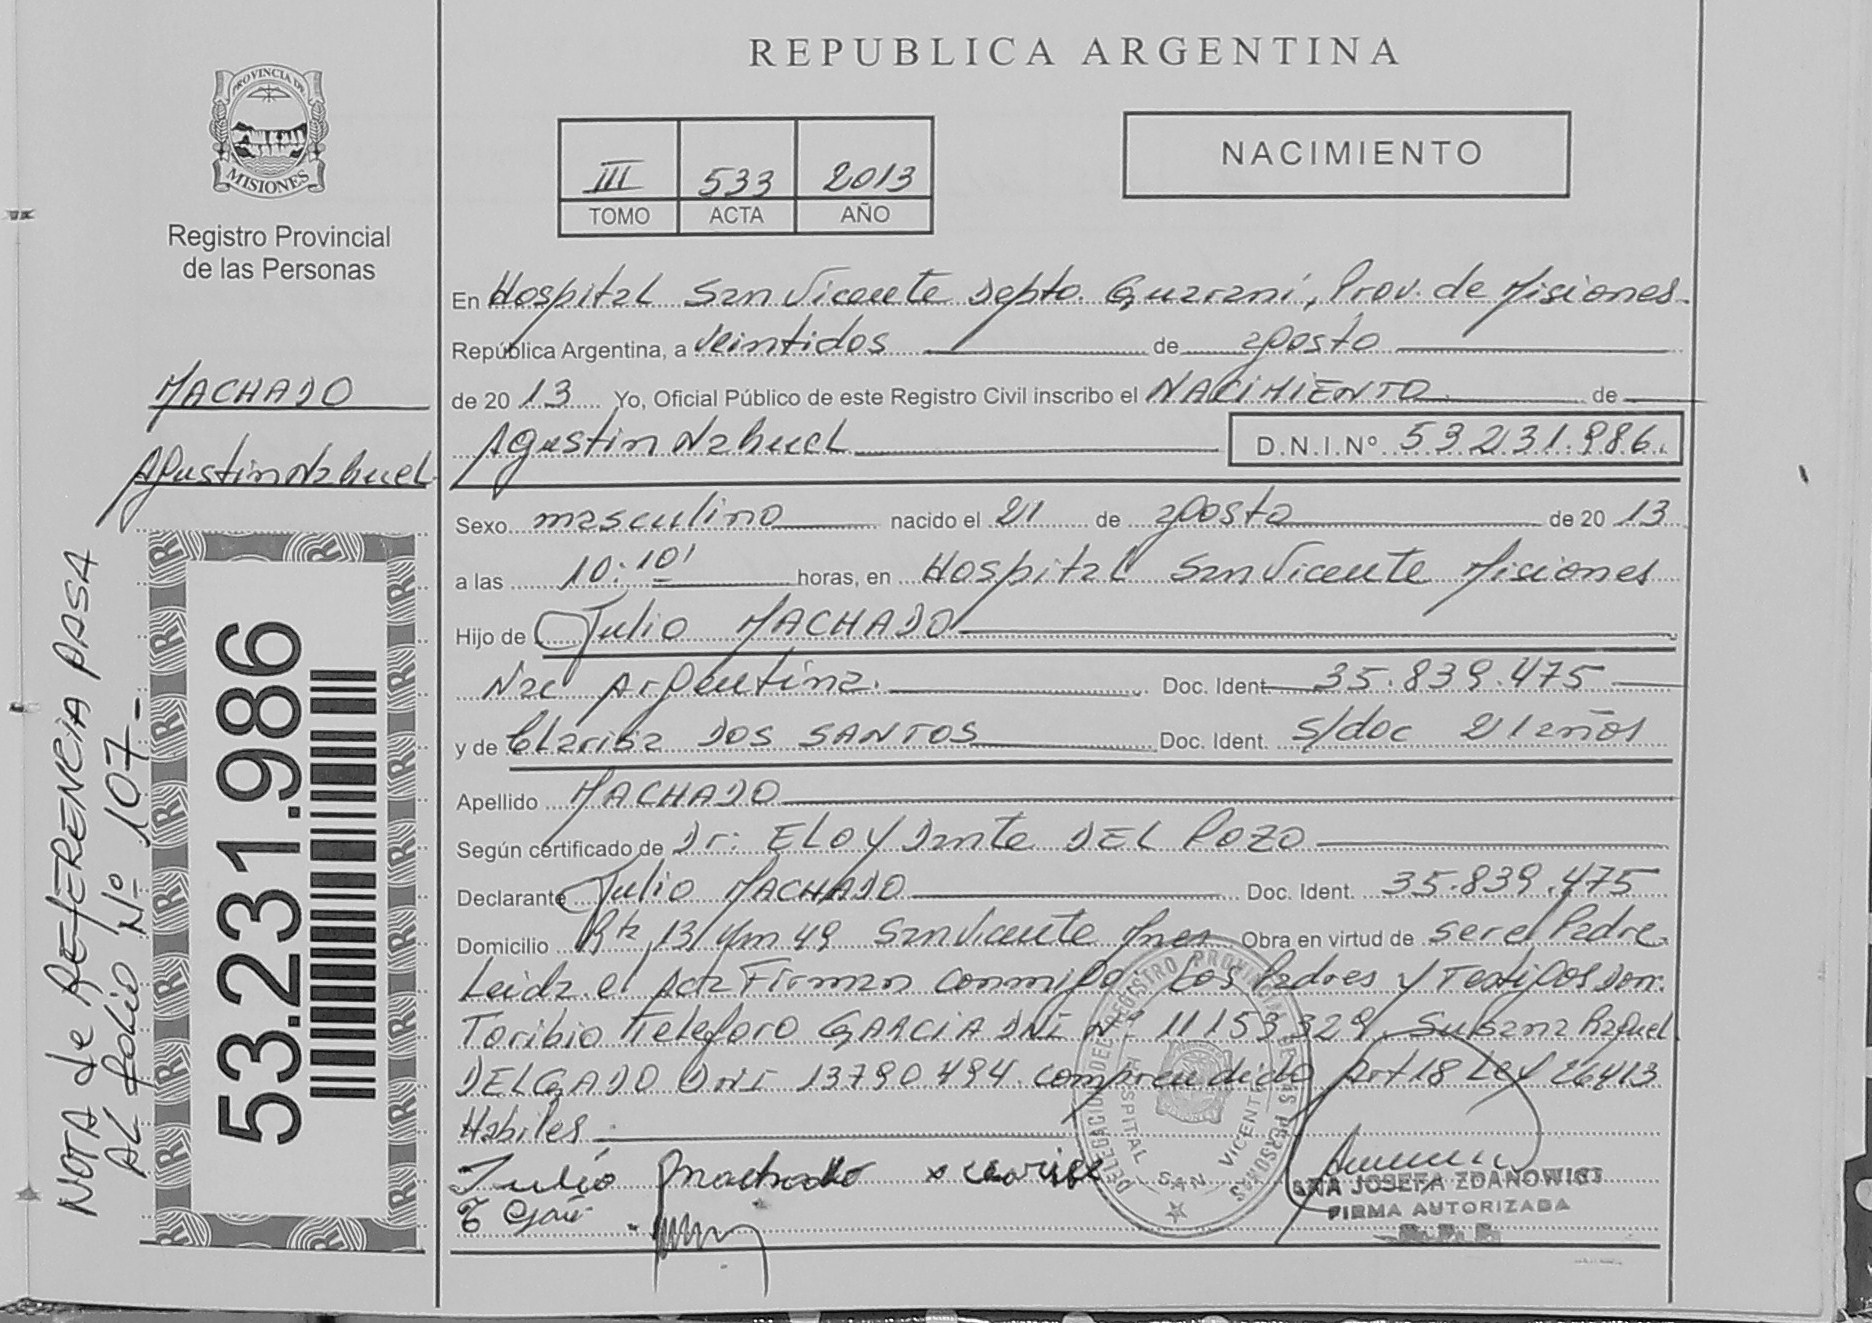 REPUBLICA ARGENTINA
PROVINCIA DE
MISIONES
Registro Provincial
de las Personas
III 533 2013
TOMO ACTA AÑO
NACIMIENTO
En Hospital San Vicente Depto. Guaraní, Prov. de Misiones
República Argentina, a veintidos de agosto
de 20 13 Yo, Oficial Público de este Registro Civil inscribo el NACIMIENTO de
Agustin Nahuel D.N.I.Nº 53.231.986.
Sexo masculino nacido el 21 de agosto de 20 13
a las 10:10' horas, en Hospital San Vicente Misiones
Hijo de Julio MACHADO
Nac Argentina. Doc. Ident. 35.839.475
y de Clarisa DOS SANTOS Doc. Ident. s/doc 21 años
Apellido MACHADO
Según certificado de Dr: ELOY Dante DEL POZO
Declarante Julio MACHADO Doc. Ident. 35.839.475
Domicilio Rta 13 Km 49 San Vicente Mnes Obra en virtud de ser el Padre
Leida el Acta Firman conmigo Los Padres y Testigos Don.
Toribio Telesforo GARCIA DNI Nº 11153329, Susana Raquel
DELGADO DNI 13790494. comprendido Art 18 Ley 26413
Habiles
Julio Machado x clarisa
SRA JOSEFA ZDANOWICZ
FIRMA AUTORIZADA
R.P.P.
DELEGACION DEL REGISTRO PROVINCIAL DE LAS PERSONAS
HOSPITAL SAN VICENTE
MACHADO
Agustin Nahuel
NOTA de REFERENCIA PASA
AL folio Nº 107-
53.231.986